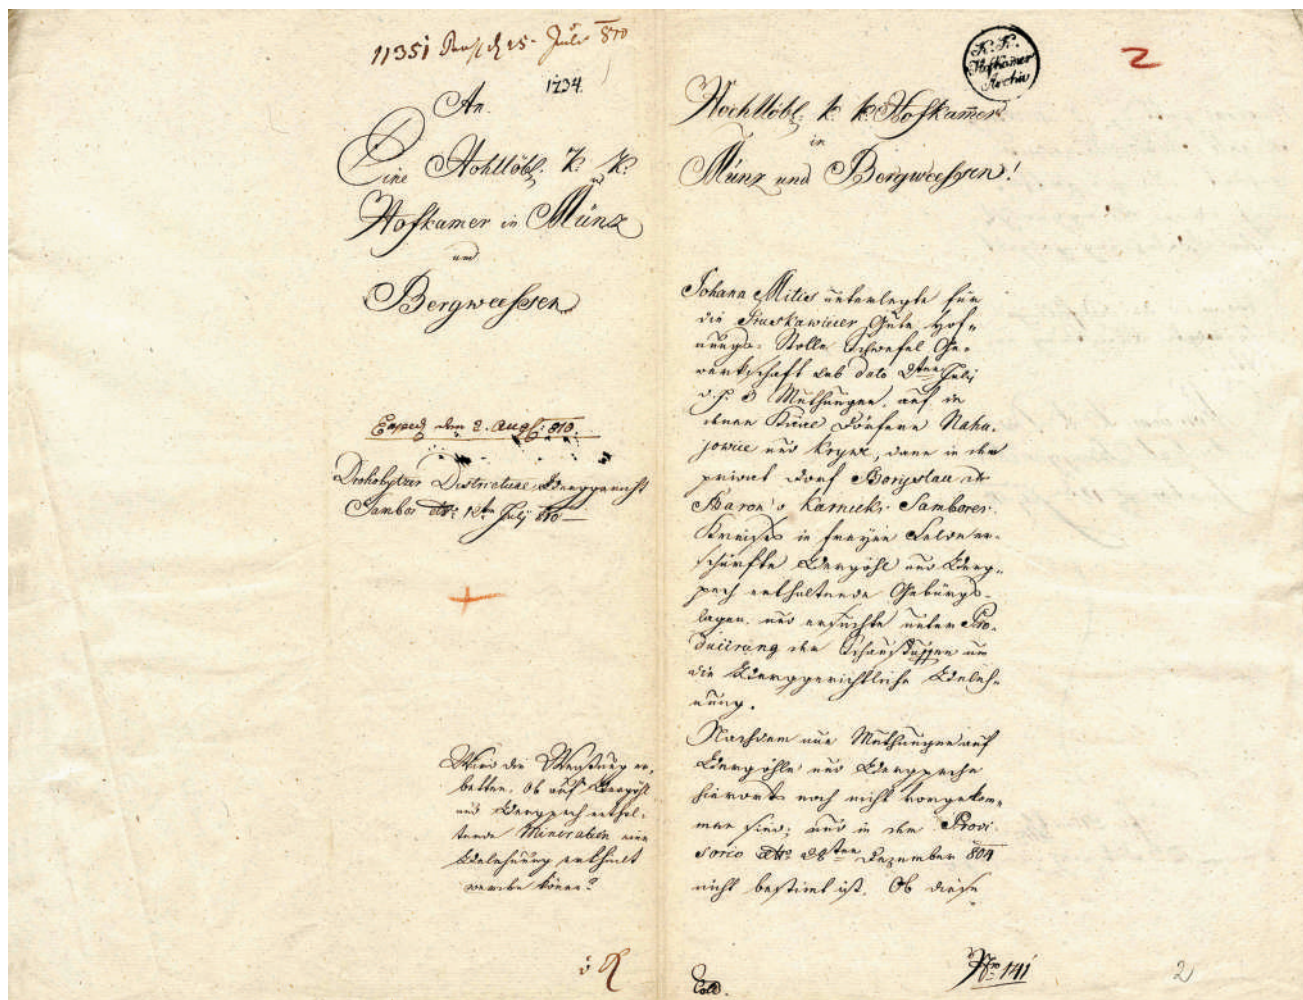 11351 Praes. d 25. July 810
1234.
An
Eine Hohllöbl. K. K.
Hofkamer in Münz
und
Bergweessen
Exped den 2. Aug. 810.
Drohobytzer Districtual Berggericht
Sambor ddto 12ten July 810
Wird die Weisung er„
betten, Ob auf Bergöhl
und Bergpech enthal„
tende Mineralien eine
Belehnung ertheilt
werden könne?
K. K.
Hofkamer
Archiv
2
Hochllöbl. k. k. Hofkamer
in
Münz und Bergweessen!
Johann Mitis unterlegte für
die Truskawicer Gute Hof„
nungs Stolle Schwefel Ge„
werkschaft sub dato 2ten July
d. J. 3 Muthungen, auf in
denen Dörfern Naha„
jowice und Krywe, dann in dem
privat Dorf Boryslau des
Baron v Karnicki Samborer
Kreises in freyen Felde er„
schürfte Bergöhl und Berg„
pech enthaltende Gebürgs„
lagen, und ersuchte unter Pro„
ducirung der Schaustuffen um
die Berggerichtliche Beleh„
nung.
Nachdem nun Muthungen auf
Bergöhle und Bergpeche
hierorts noch nicht vorgekom„
men sind; und in dem Provi„
sorio ddto 28ten Dezember 804
nicht bestimt ist, Ob diese
No 141
2